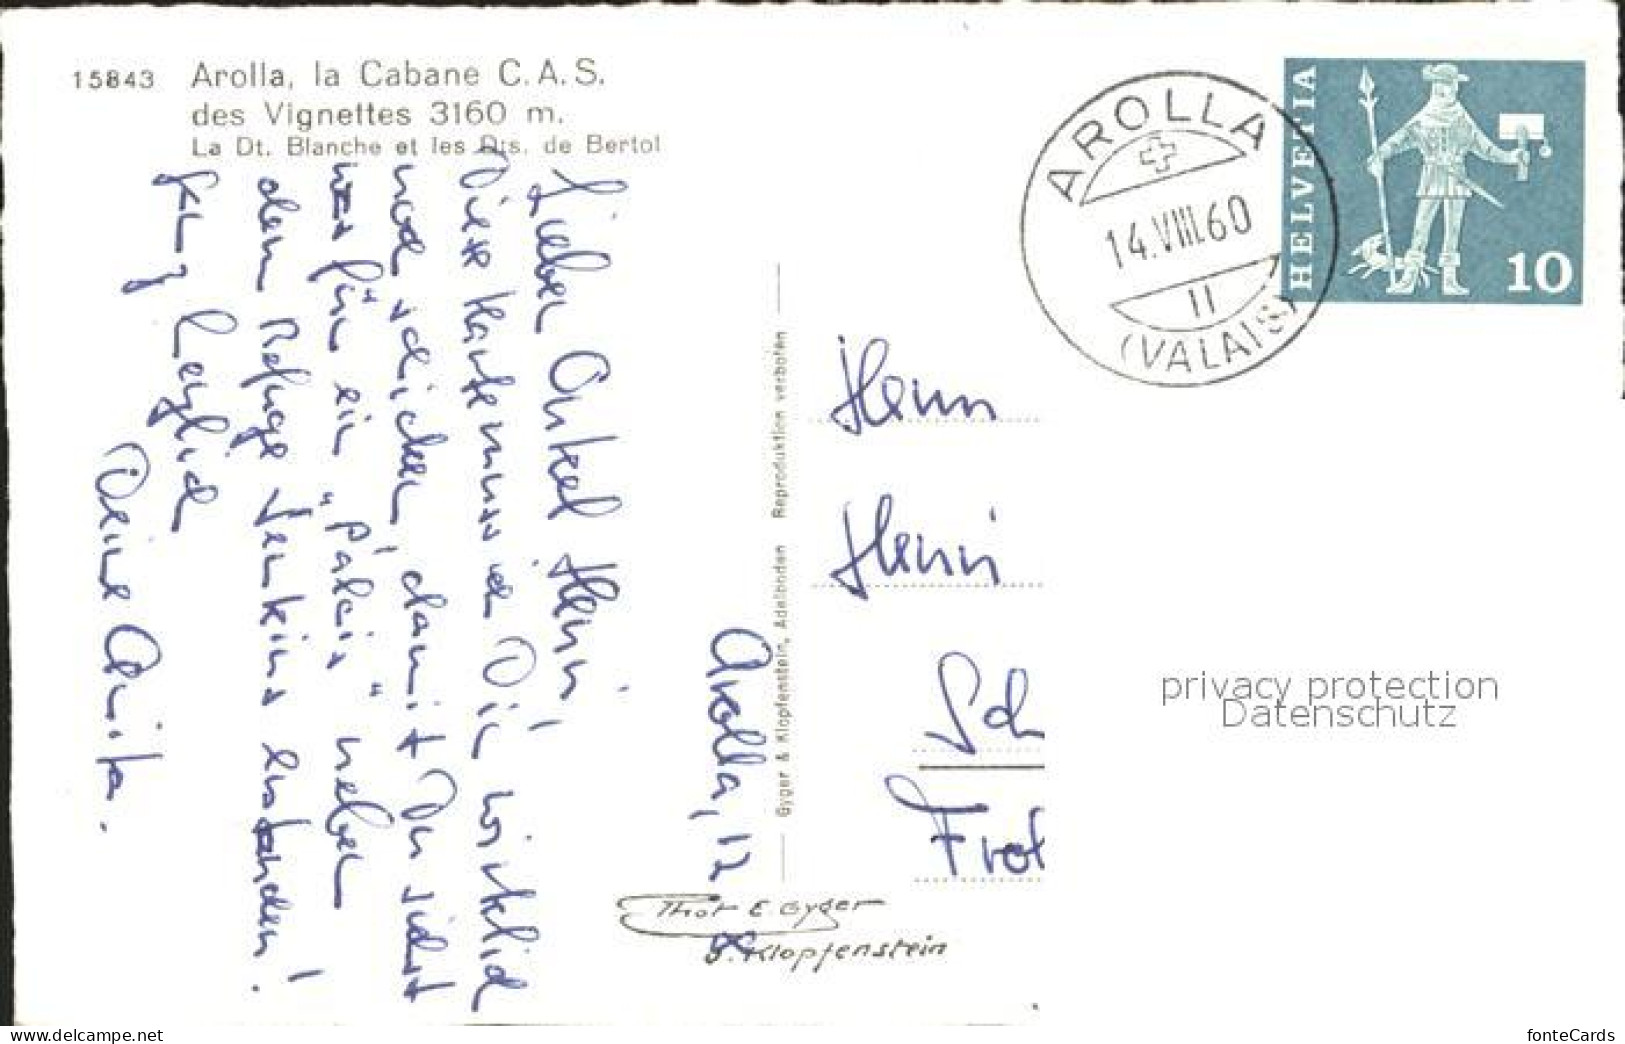 15843 Arolla, la Cabane C.A.S.
des Vignettes 3160 m.
La Dt. Blanche et les Dts. de Bertol
Arolla, 12. 8.
Lieber Onkel Heini,
Diese Karte muss ich Dir wirklich
noch schicken, damit Du siehst
was für ein "Palais" neben
dem Refuge Jenkins entstanden!
Deine Anita.
Gyger & Klopfenstein, Adelboden Reproduktion verboten
Phot E. Gyger
Klopfenstein
AROLLA
14.VIII.60
11
(VALAIS)
HELVETIA
10
Herrn
Heini
Sch
Frot
privacy protection
Datenschutz
www.delcampe.net
fonteCards